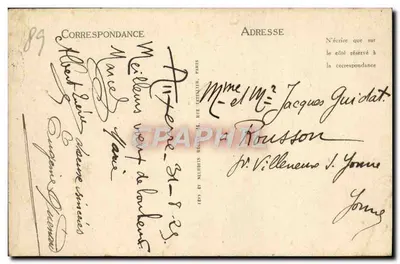 89
CORRESPONDANCE
ADRESSE
N'écrire que sur
le côté réservé à
la correspondance
Auxerre - 31-8-25
Meilleurs vœux de bonheur
Marcel
Marie
Albert
sincères
Eugénie
Mme et Mr Jacques Guidat
à Rousson
pr. Villeneuve s. Yonne
Yonne
CPAPHIL